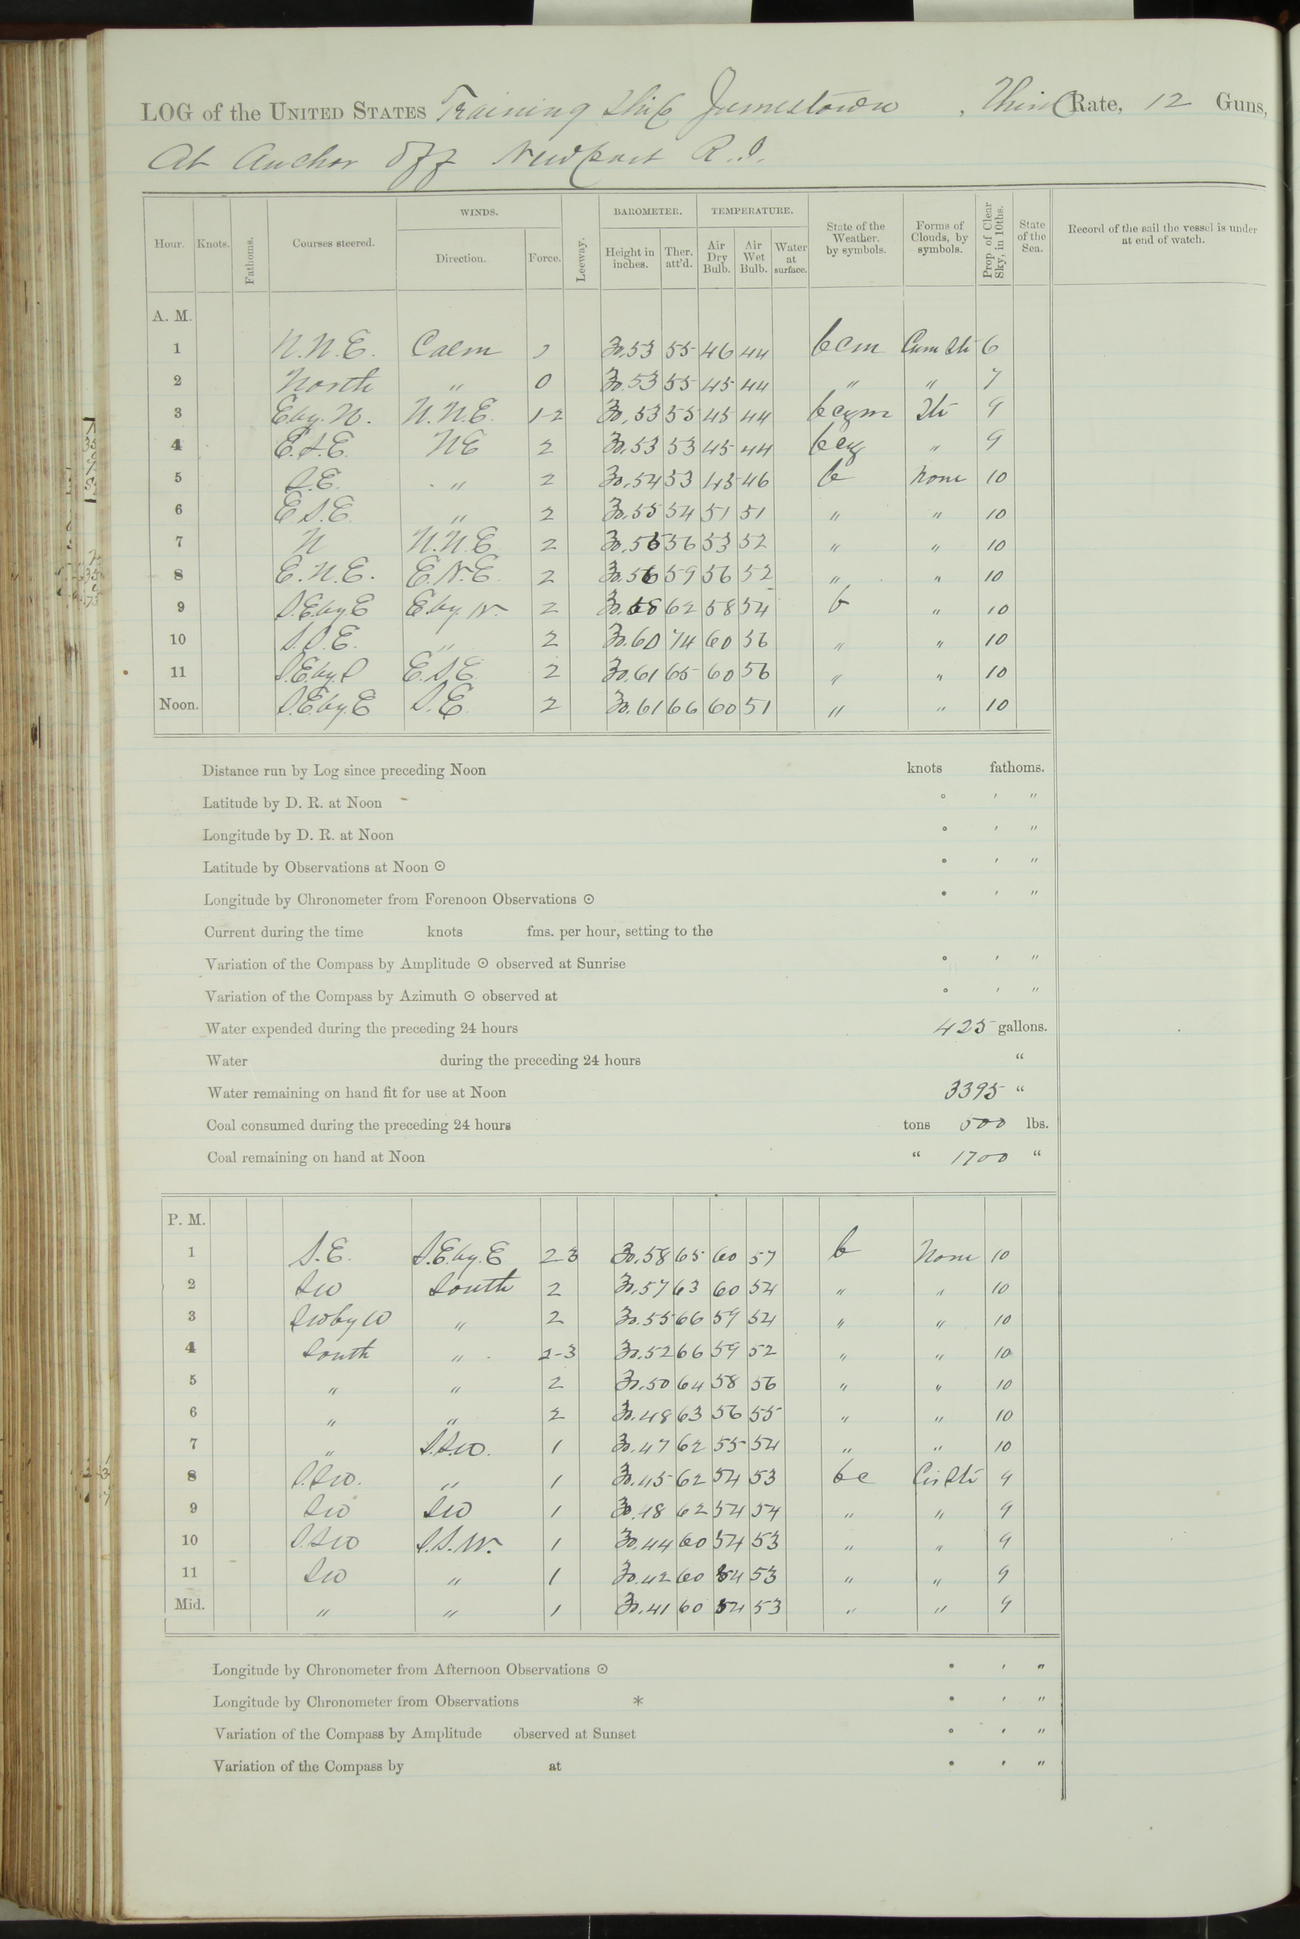 LOG of the UNITED STATES Training Ship Jamestown, Third Rate, 12 Guns,
At Anchor off Newport R.I.
Hour. Knots. Fathoms. Courses steered. WINDS. Direction. Force. Leeway. BAROMETER. Height in inches. Ther. att'd. TEMPERATURE. Air Dry Bulb. Air Wet Bulb. Water at surface. State of the Weather. by symbols. Forms of Clouds, by symbols. Prop. of Clear Sky, in 10ths. State of the Sea. Record of the sail the vessel is under at end of watch.
A. M.
1 N.N.E. Calm 0 30.53 55 46 44 bcm Cum Str 6
2 North " 0 30.53 55 45 44 " " 7
3 E by N. N.N.E. 1-2 30.53 55 45 44 bcym Str 9
4 E.S.E. NE 2 30.53 53 45 44 " 9
5 S.E. " 2 30.54 53 45 46 b None 10
6 E S.E. " 2 30.55 54 51 51 " " 10
7 N N.N.E 2 30.56 56 53 52 " " 10
8 E.N.E. E.N.E. 2 30.56 59 56 52 " " 10
9 S.E by E E by N 2 30.58 62 58 54 b " 10
10 S.S.E. " 2 30.60 74 60 56 " " 10
11 S.E by S E.S.E. 2 30.61 65 60 56 " " 10
Noon. S.E by E S.E. 2 30.61 66 60 51 " " 10
Distance run by Log since preceding Noon knots fathoms.
Latitude by D. R. at Noon ° ' "
Longitude by D. R. at Noon ° ' "
Latitude by Observations at Noon ☉ ° ' "
Longitude by Chronometer from Forenoon Observations ☉ ° ' "
Current during the time knots fms. per hour, setting to the
Variation of the Compass by Amplitude ☉ observed at Sunrise ° ' "
Variation of the Compass by Azimuth ☉ observed at ° ' "
Water expended during the preceding 24 hours 425 gallons.
Water during the preceding 24 hours "
Water remaining on hand fit for use at Noon 3395 "
Coal consumed during the preceding 24 hours tons 500 lbs.
Coal remaining on hand at Noon " 1700 "
P. M.
1 S.E. S.E. by. E 2 3 30.58 65 60 57 b None 10
2 SW South 2 30.57 63 60 54 " " 10
3 SW by W " 2 30.55 66 59 54 " " 10
4 South " 2-3 30.52 66 59 52 " " 10
5 " " 2 30.50 64 58 56 " " 10
6 " " 2 30.48 63 56 55 " " 10
7 " S.S.W. 1 30.47 62 55 54 " " 10
8 S.SW. " 1 30.45 62 54 53 bc Cir Str 9
9 SW SW 1 30.48 62 54 54 " " 9
10 S.SW S.S.W. 1 30.44 60 54 53 " " 9
11 SW " 1 30.42 60 54 53 " " 9
Mid. " " 1 30.41 60 54 53 " " 9
Longitude by Chronometer from Afternoon Observations ☉ ° ' "
Longitude by Chronometer from Observations * ° ' "
Variation of the Compass by Amplitude observed at Sunset ° ' "
Variation of the Compass by at ° ' "